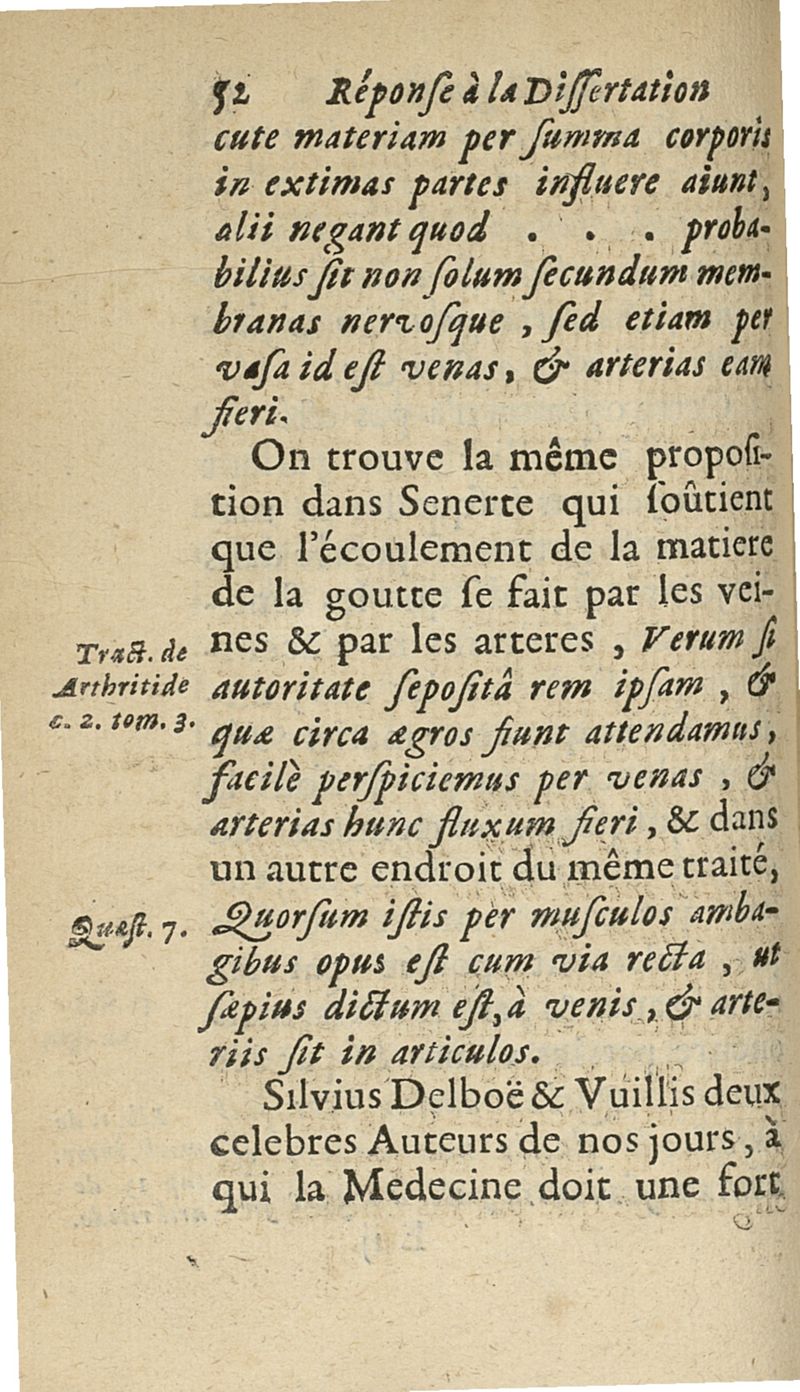 52 Réponſe à la Diſſertation
cute materiam per ſumma corporis
in extimas partes influere aiunt,
alii negant quod . . . proba-
bilius ſit non ſolum ſecundum mem-
branas nervoſque, ſed etiam per
vaſa id eſt venas, & arterias eam
fieri.
On trouve la même propoſi-
tion dans Senerte qui ſoûtient
que l'écoulement de la matiere
de la goutte ſe fait par les vei-
nes & par les arteres, Verum ſi
Tract. de
Arthritide
c. 2. tom. 3.
autoritate ſepoſitâ rem ipſam, &
quæ circa ægros fiunt attendamus,
facilè perſpiciemus per venas, &
arterias hunc fluxum fieri, & dans
un autre endroit du même traité,
Quæſt. 7.
Quorſum iſtis per muſculos amba-
gibus opus eſt cum via recta, ut
ſæpius dictum eſt, à venis, & arte-
riis ſit in articulos.
Silvius Delboë & Vuillis deux
celebres Auteurs de nos jours, à
qui la Medecine doit une fort